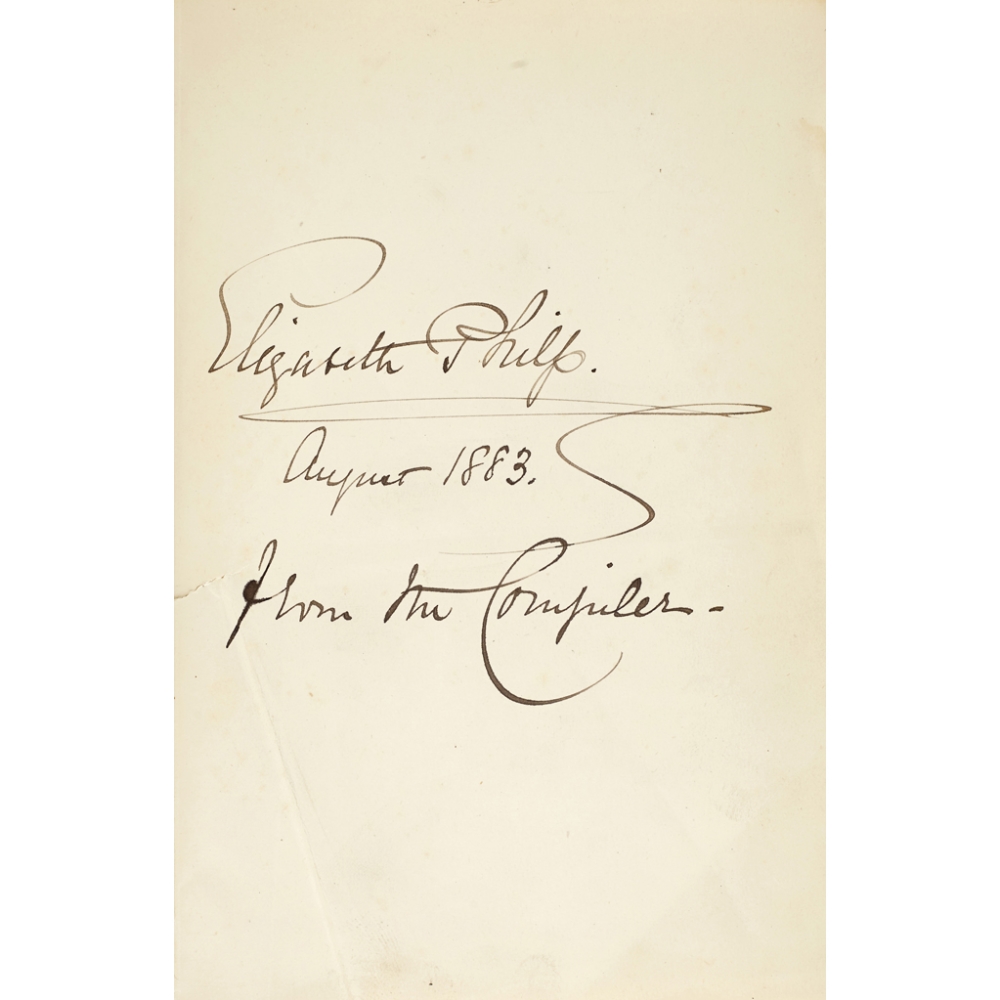 Elizabeth Philp.
August 1883.
From the Compiler -